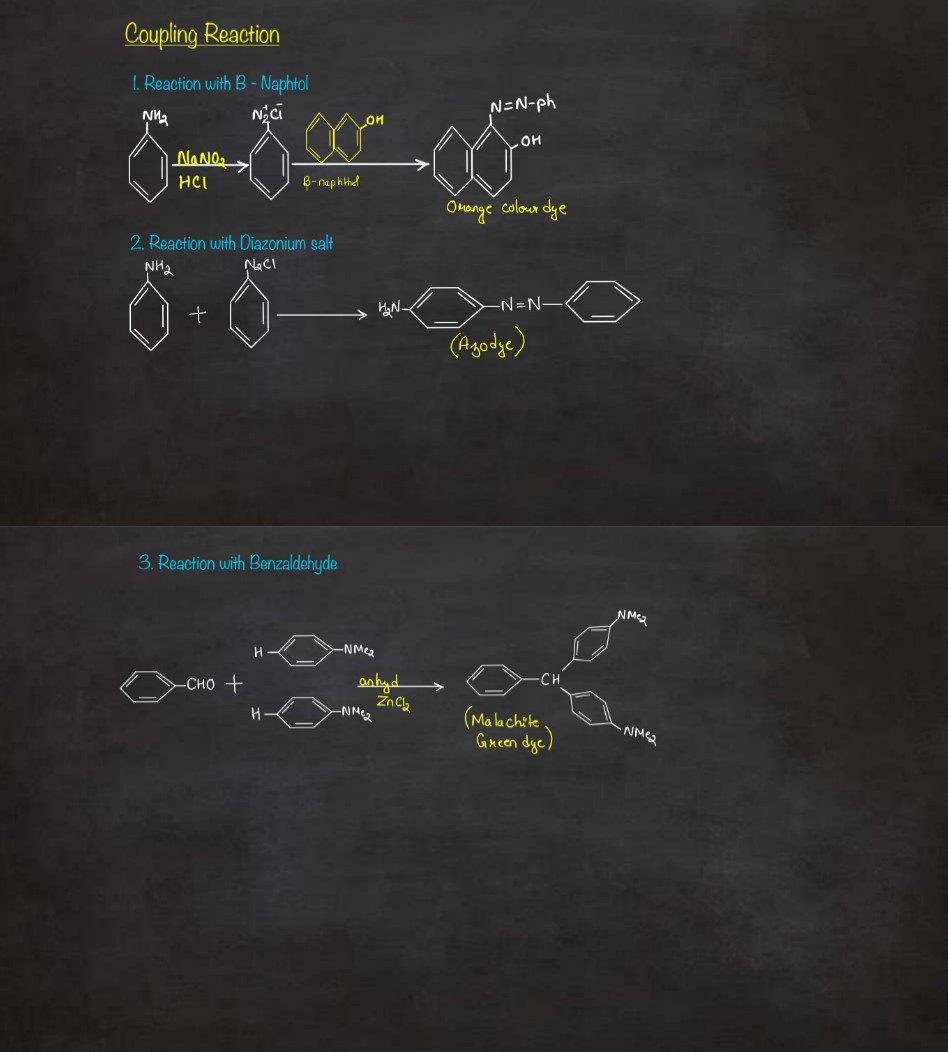 Coupling Reaction
1. Reaction with B - Naphtol
NH₂
N₂⁺Cl⁻
OH
NaNO₂
HCl
β-naphthol
N=N-ph
OH
Orange colour dye
2. Reaction with Diazonium salt
NH₂
+
N₂Cl
H₂N
N=N
(Azodye)
3. Reaction with Benzaldehyde
CHO +
H
NMe₂
H
NMe₂
anhyd
ZnCl₂
CH
NMe₂
NMe₂
(Malachite
Green dye)